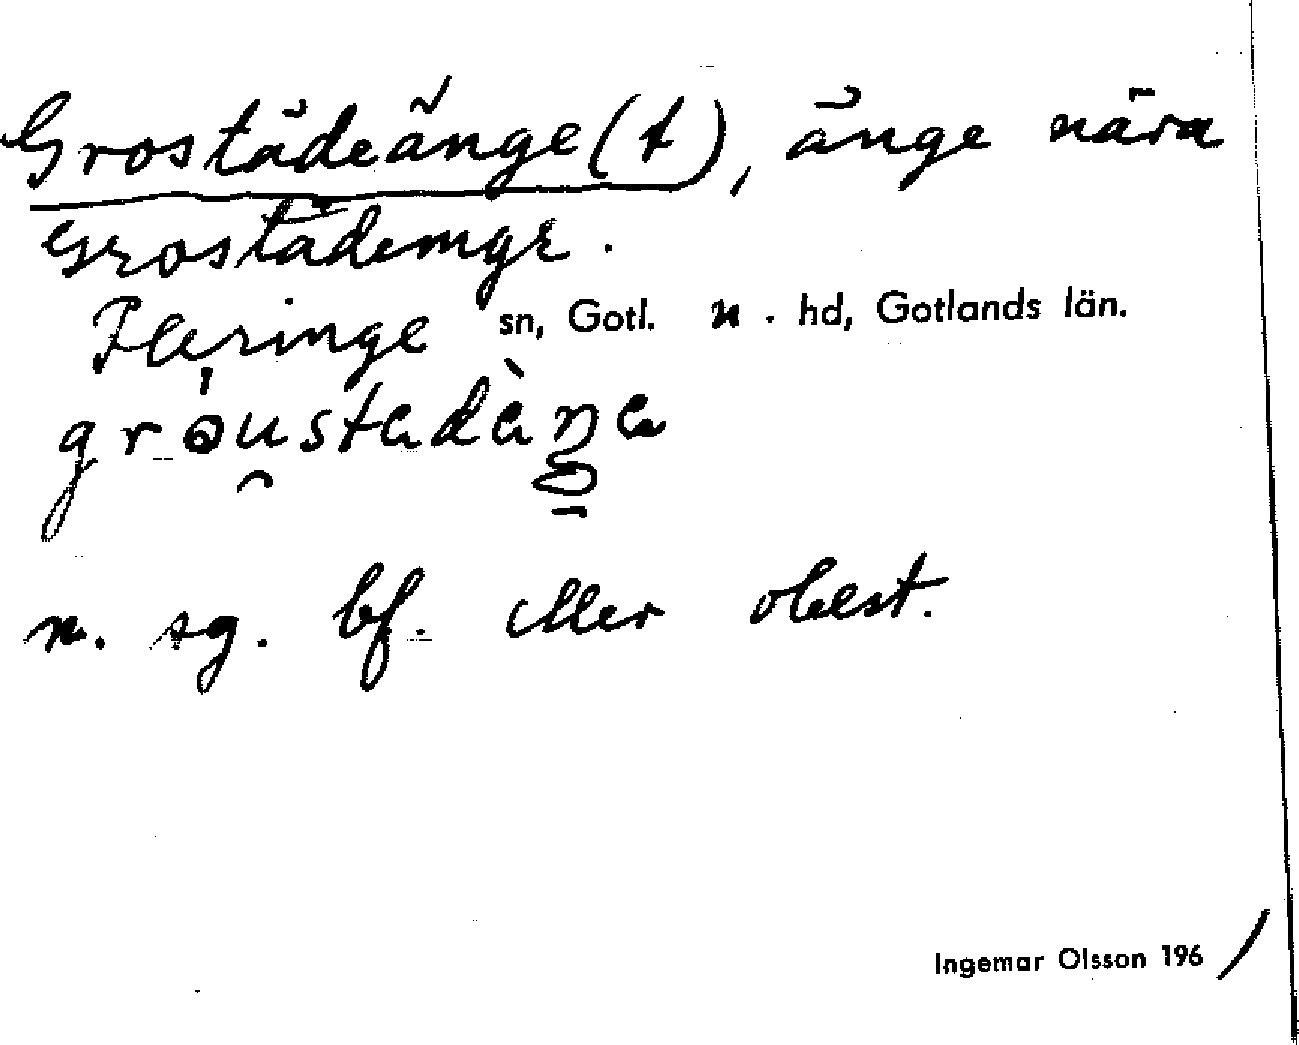 Grostädeänge(t), änge nära
Grostädemyr.
Fleringe sn, Gotl. n. hd, Gotlands län.
grəu̯stadàŋa
n. sg. bf. eller obest.
Ingemar Olsson 196/